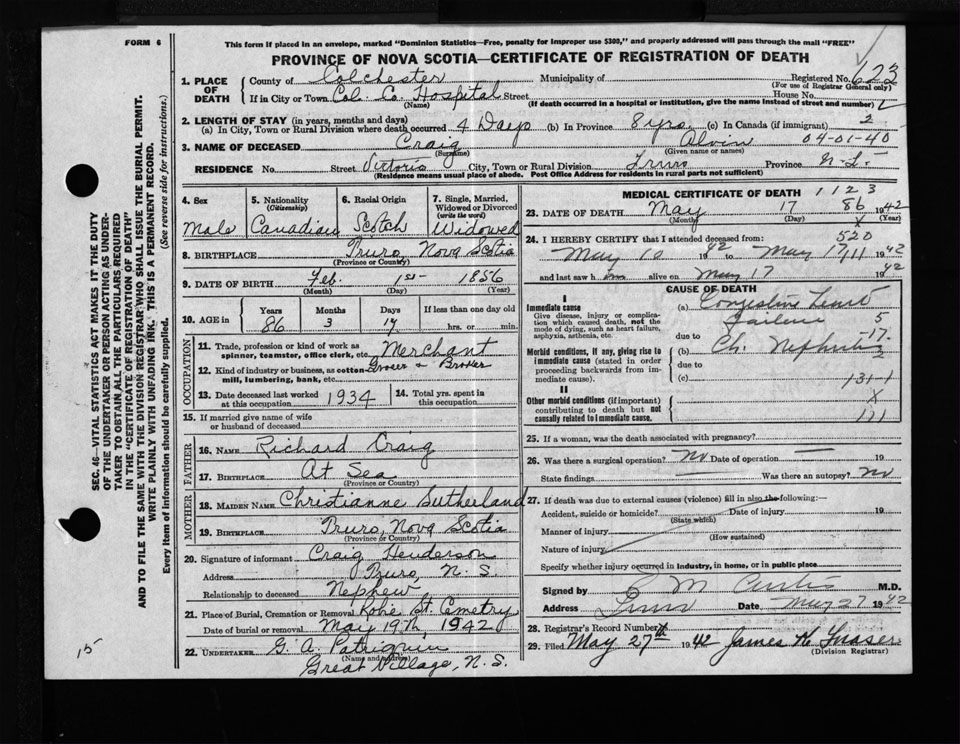 FORM 6
This form if placed in an envelope, marked "Dominion Statistics—Free, penalty for improper use $300," and properly addressed will pass through the mail "FREE"
PROVINCE OF NOVA SCOTIA—CERTIFICATE OF REGISTRATION OF DEATH
SEC. 46—VITAL STATISTICS ACT MAKES IT THE DUTY
OF THE UNDERTAKER OR PERSON ACTING AS UNDER-
TAKER TO OBTAIN ALL THE PARTICULARS REQUIRED
IN THE "CERTIFICATE OF REGISTRATION OF DEATH"
AND TO FILE THE SAME WITH THE DIVISION REGISTRAR WHO SHALL ISSUE THE BURIAL PERMIT.
WRITE PLAINLY WITH UNFADING INK. THIS IS A PERMANENT RECORD.
Every item of information should be carefully supplied. (See reverse side for instructions.)
15
1. PLACE OF DEATH
County of Colchester Municipality of Registered No. 623
(For use of Registrar General only)
If in City or Town Col. Co. Hospital Street House No.
(Name) (If death occurred in a hospital or institution, give the name instead of street and number)
2. LENGTH OF STAY (in years, months and days) 2
(a) In City, Town or Rural Division where death occurred 4 Days (b) In Province 8 yrs (c) In Canada (if immigrant)
04-01-40
3. NAME OF DECEASED Craig Alvin
(Surname) (Given name or names)
RESIDENCE No. Street Victoria City, Town or Rural Division Truro Province N.S.
(Residence means usual place of abode. Post Office Address for residents in rural parts not sufficient)
4. Sex Male
5. Nationality (Citizenship) Canadian
6. Racial Origin Scotch
7. Single, Married, Widowed or Divorced (write the word) Widowed
8. BIRTHPLACE Truro, Nova Scotia
(Province or Country)
9. DATE OF BIRTH Feb. 1st 1856
(Month) (Day) (Year)
10. AGE in Years 86 Months 3 Days 17 If less than one day old hrs. or min.
OCCUPATION
11. Trade, profession or kind of work as spinner, teamster, office clerk, etc. Merchant
12. Kind of industry or business, as cotton mill, lumbering, bank, etc. Grocer & Broker
13. Date deceased last worked at this occupation 1934
14. Total yrs. spent in this occupation
15. If married give name of wife or husband of deceased
FATHER
16. NAME Richard Craig
17. BIRTHPLACE At Sea
(Province or Country)
MOTHER
18. MAIDEN NAME Christianne Sutherland
19. BIRTHPLACE Truro, Nova Scotia
(Province or Country)
20. Signature of informant Craig Henderson
Address Truro, N.S.
Relationship to deceased Nephew
21. Place of Burial, Cremation or Removal St. Cemetry
Date of burial or removal May 19th, 1942
22. UNDERTAKER G. A.
(Name and address)
Great Village, N.S.
MEDICAL CERTIFICATE OF DEATH 1123
23. DATE OF DEATH May 17 86 1942
(Month) (Day) (Year)
x
520
24. I HEREBY CERTIFY that I attended deceased from:
May 1942 to May 17 11 1942
and last saw him alive on May 17 1942
CAUSE OF DEATH
I
Immediate cause
Give disease, injury or complication which caused death, not the mode of dying, such as heart failure, asphyxia, asthenia, etc.
(a) Congestive Heart Failure 5
due to
17
Morbid conditions, if any, giving rise to immediate cause (stated in order proceeding backwards from immediate cause).
(b) Ch. Nephritis 2
due to
(c) 131-1
II
Other morbid conditions (if important) contributing to death but not causally related to immediate cause.
x
111
25. If a woman, was the death associated with pregnancy?
26. Was there a surgical operation? No Date of operation — 19
State findings Was there an autopsy? No
27. If death was due to external causes (violence) fill in also the following:—
Accident, suicide or homicide? Date of injury 19
(State which)
Manner of injury
(How sustained)
Nature of injury
Specify whether injury occurred in industry, in home, or in public place
Signed by M Curtis M.D.
Address Truro Date May 27 1942
28. Registrar's Record Number
29. Filed May 27th 1942 James H. Fraser
(Division Registrar)